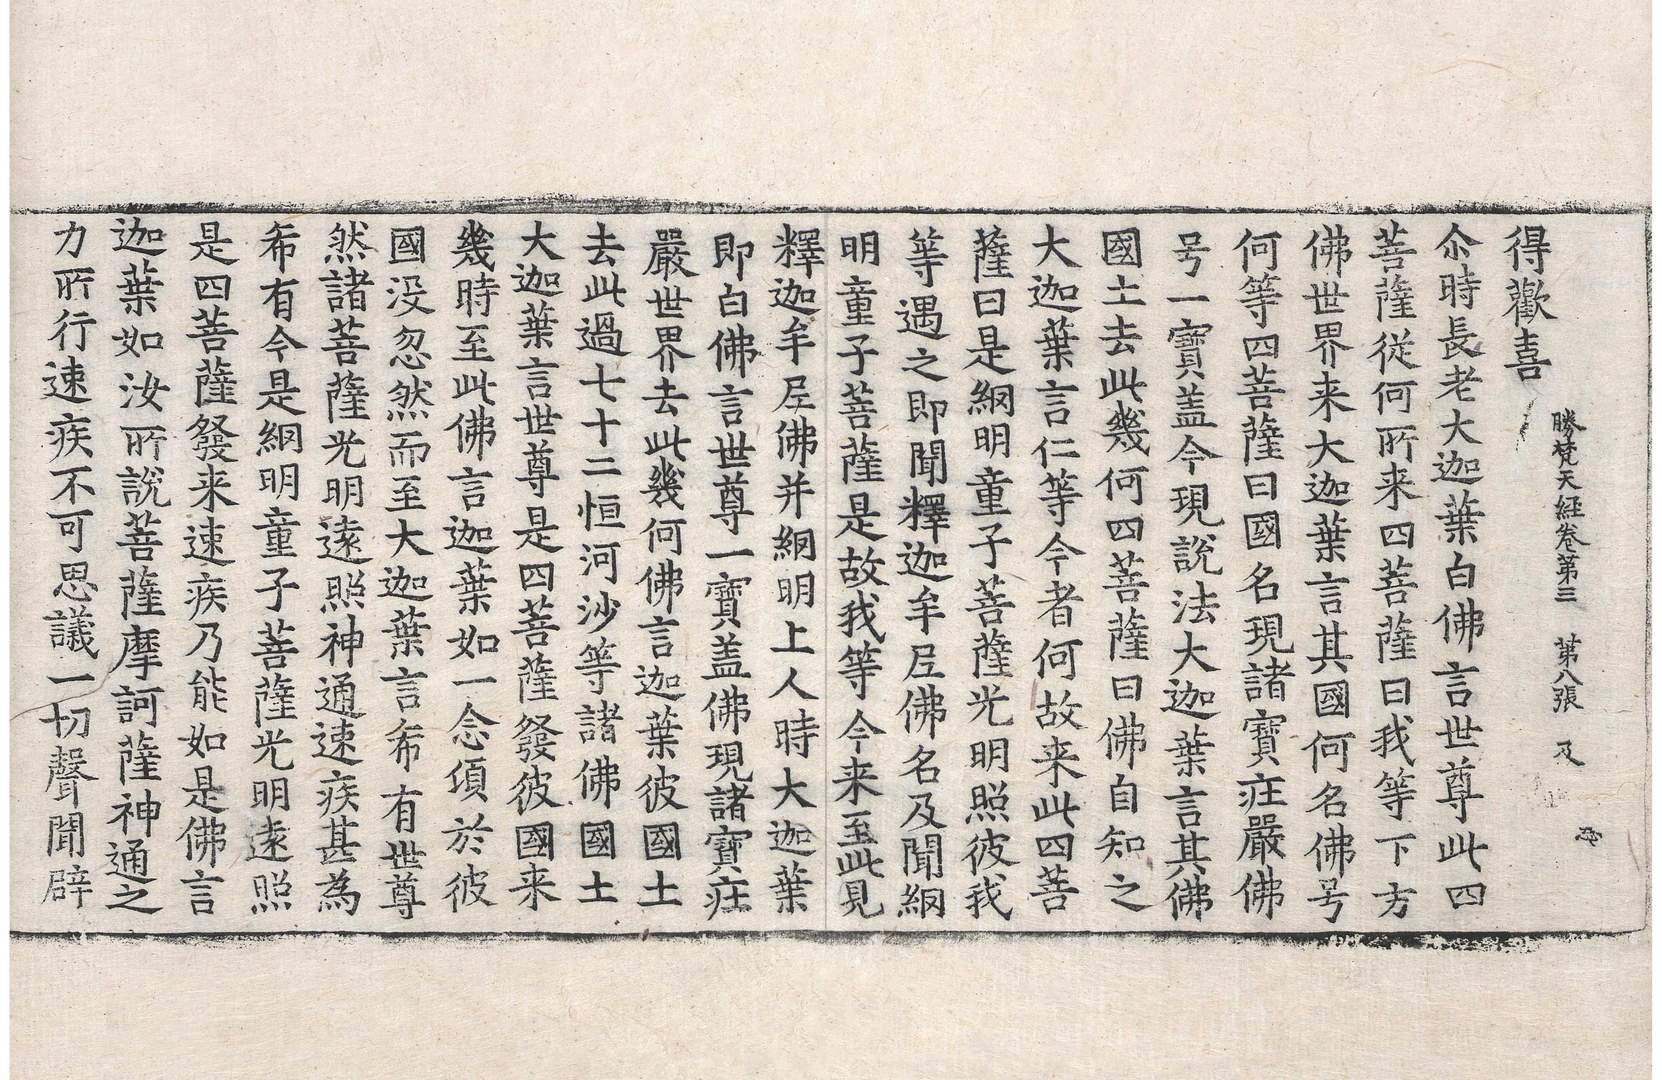 勝梵天経卷第三　第八張　及
得歡喜
尒時長老大迦葉白佛言世尊此四
菩薩從何所来四菩薩曰我等下方
佛世界来大迦葉言其國何名佛号
何等四菩薩曰國名現諸寶疘嚴佛
号一寶盖今現說法大迦葉言其佛
國土去此幾何四菩薩曰佛自知之
大迦葉言仁等今者何故来此四菩
薩曰是網明童子菩薩光明照彼我
等遇之即聞釋迦牟尼佛名及聞網
明童子菩薩是故我等今来至此見
釋迦牟尼佛并網明上人時大迦葉
即白佛言世尊一寶盖佛現諸寶疘
嚴世界去此幾何佛言迦葉彼國土
去此過七十二恒河沙等諸佛國土
大迦葉言世尊是四菩薩發彼國来
幾時至此佛言迦葉如一念頃於彼
國没忽然而至大迦葉言希有世尊
然諸菩薩光明遠照神通速疾甚為
希有今是網明童子菩薩光明遠照
是四菩薩發来速疾乃能如是佛言
迦葉如汝所說菩薩摩訶薩神通之
力所行速疾不可思議一切聲聞辟